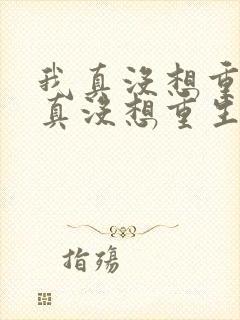 我真没想重
真没想重生
指殇